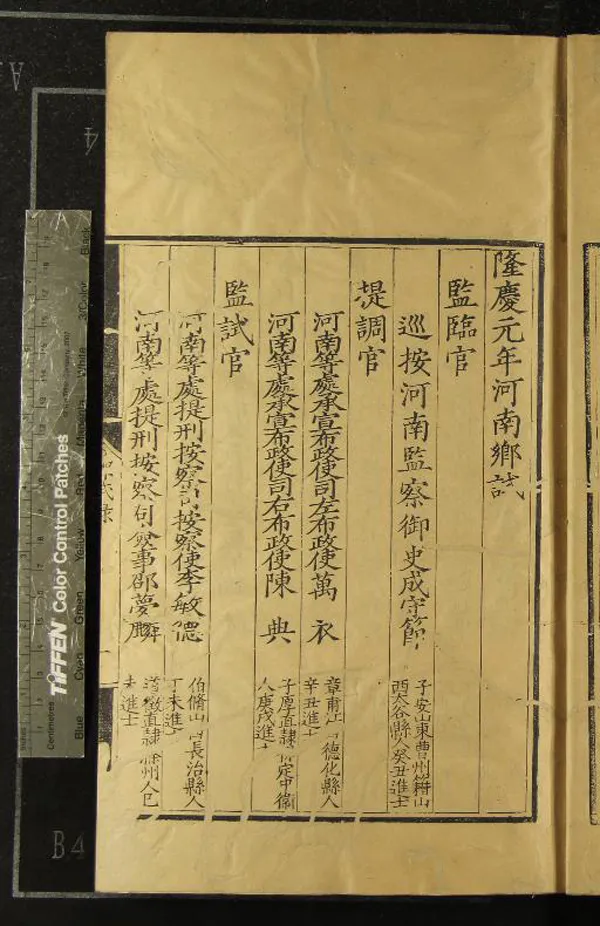 隆慶元年河南鄉試
監臨官
巡按河南監察御史成守節
子安山東曹州籍山
西太谷縣人癸丑進士
提調官
河南等處承宣布政使司左布政使萬衣
章甫江西德化縣人
辛丑進士
河南等處承宣布政使司右布政使陳典
子厚直隸保定中衛
人庚戌進士
監試官
河南等處提刑按察司按察使李敏德
伯脩山西長治縣人
丁未進士
河南等處提刑按察司僉事邵夢麟
道徵直隸滁州人己
未進士
TIFFEN Color Control Patches
Blue
Cyan
Green
Yellow
Red
Magenta
White
3/Color
Black
Centimetres
Inches
B4
A
4